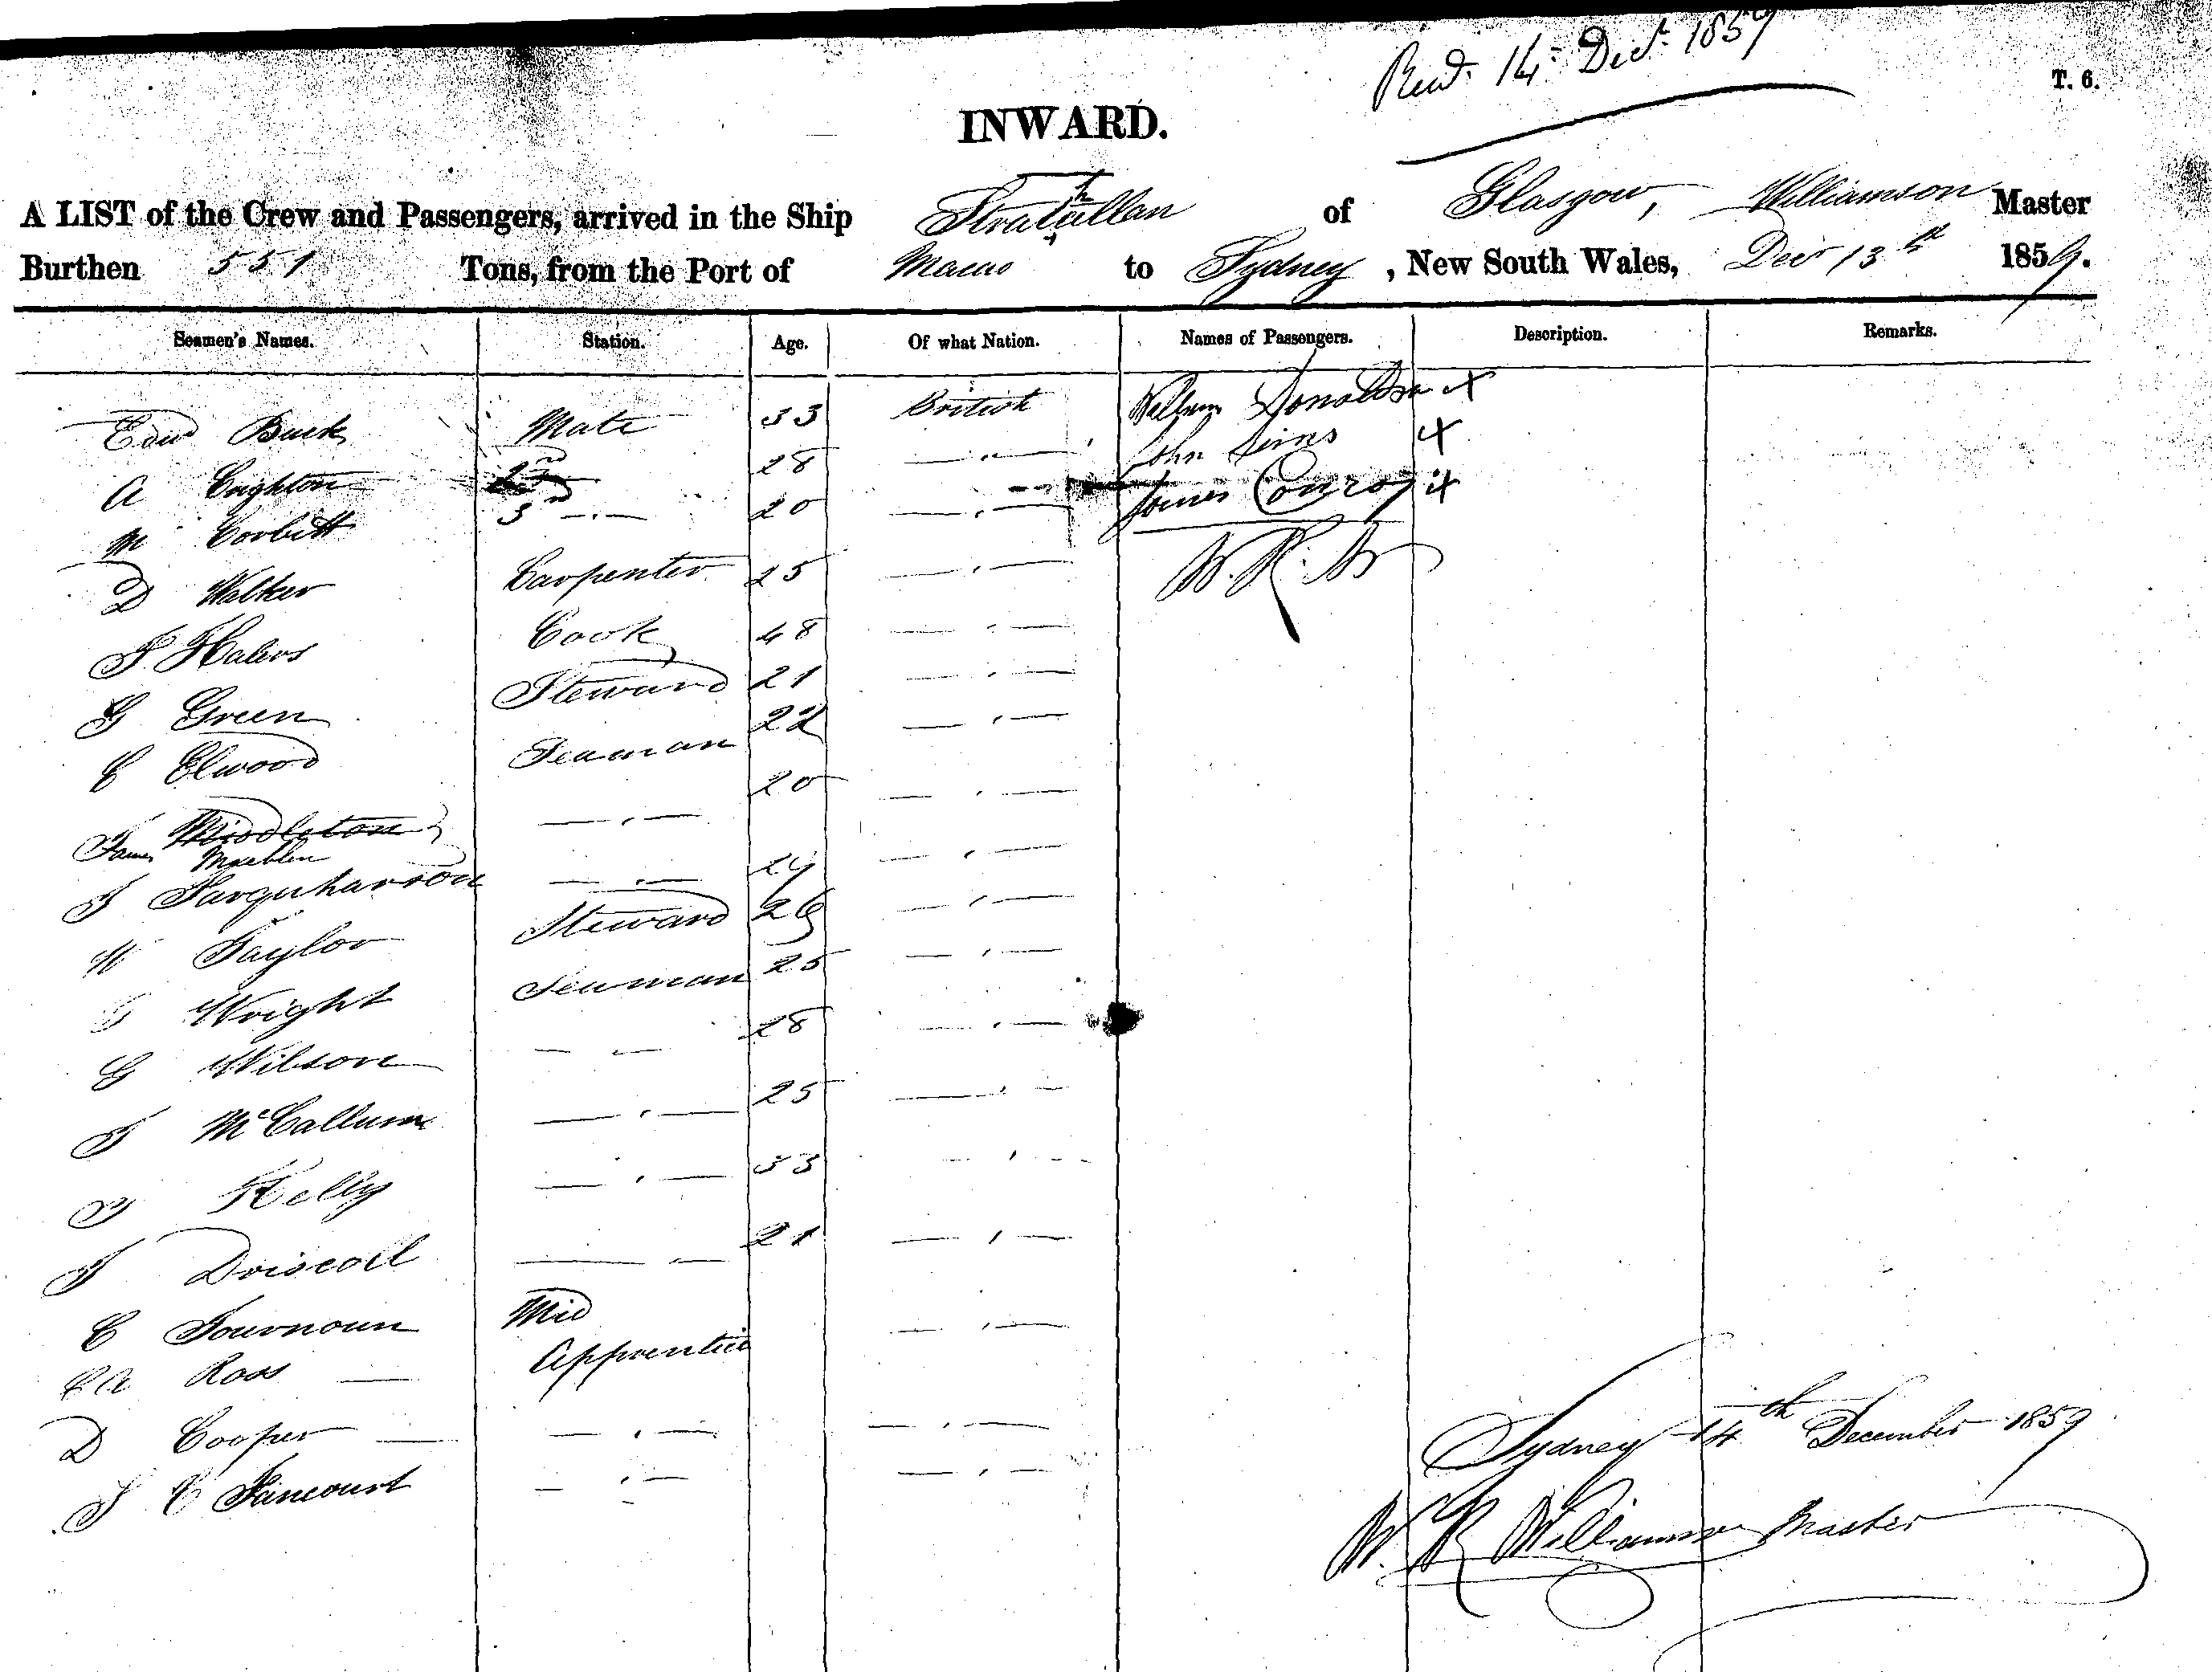 Recd. 14 Decr. 1859
T. 6.
INWARD.
A LIST of the Crew and Passengers, arrived in the Ship Strathallan of Glasgow, Williamson Master
Burthen 551 Tons, from the Port of Macao to Sydney, New South Wales, Decr 13th 1859.
Seamen's Names. Station. Age. Of what Nation. Names of Passengers. Description. Remarks.
Edwd Buck Mate 33 British William Donaldson x
A Crighton 2nd 28 — " — John Sims x
M Corbitt 3rd — " — 20 — " — James Conroy x
D Walker Carpenter 25 — " — W. R. W
Cook 48 — " —
G Green Steward 21 — " —
C Elwood Seaman 22 — " —
James Middleton — " — 20 — " —
J Farquharson — " — 24 — " —
W Taylor Steward 26 — " —
Wright Seaman 25 — " —
G Wilson — " — 28 — " —
J McCallum — " — 25 — " —
J Kelly — " — 33 — " —
J Driscoll — " — 21 — " —
C Mid — " —
C A Ross — Apprentice
D Cooper — — " — — " —
J C Fancourt — " — — " —
Sydney 14th December 1859
W. R Williamson Master